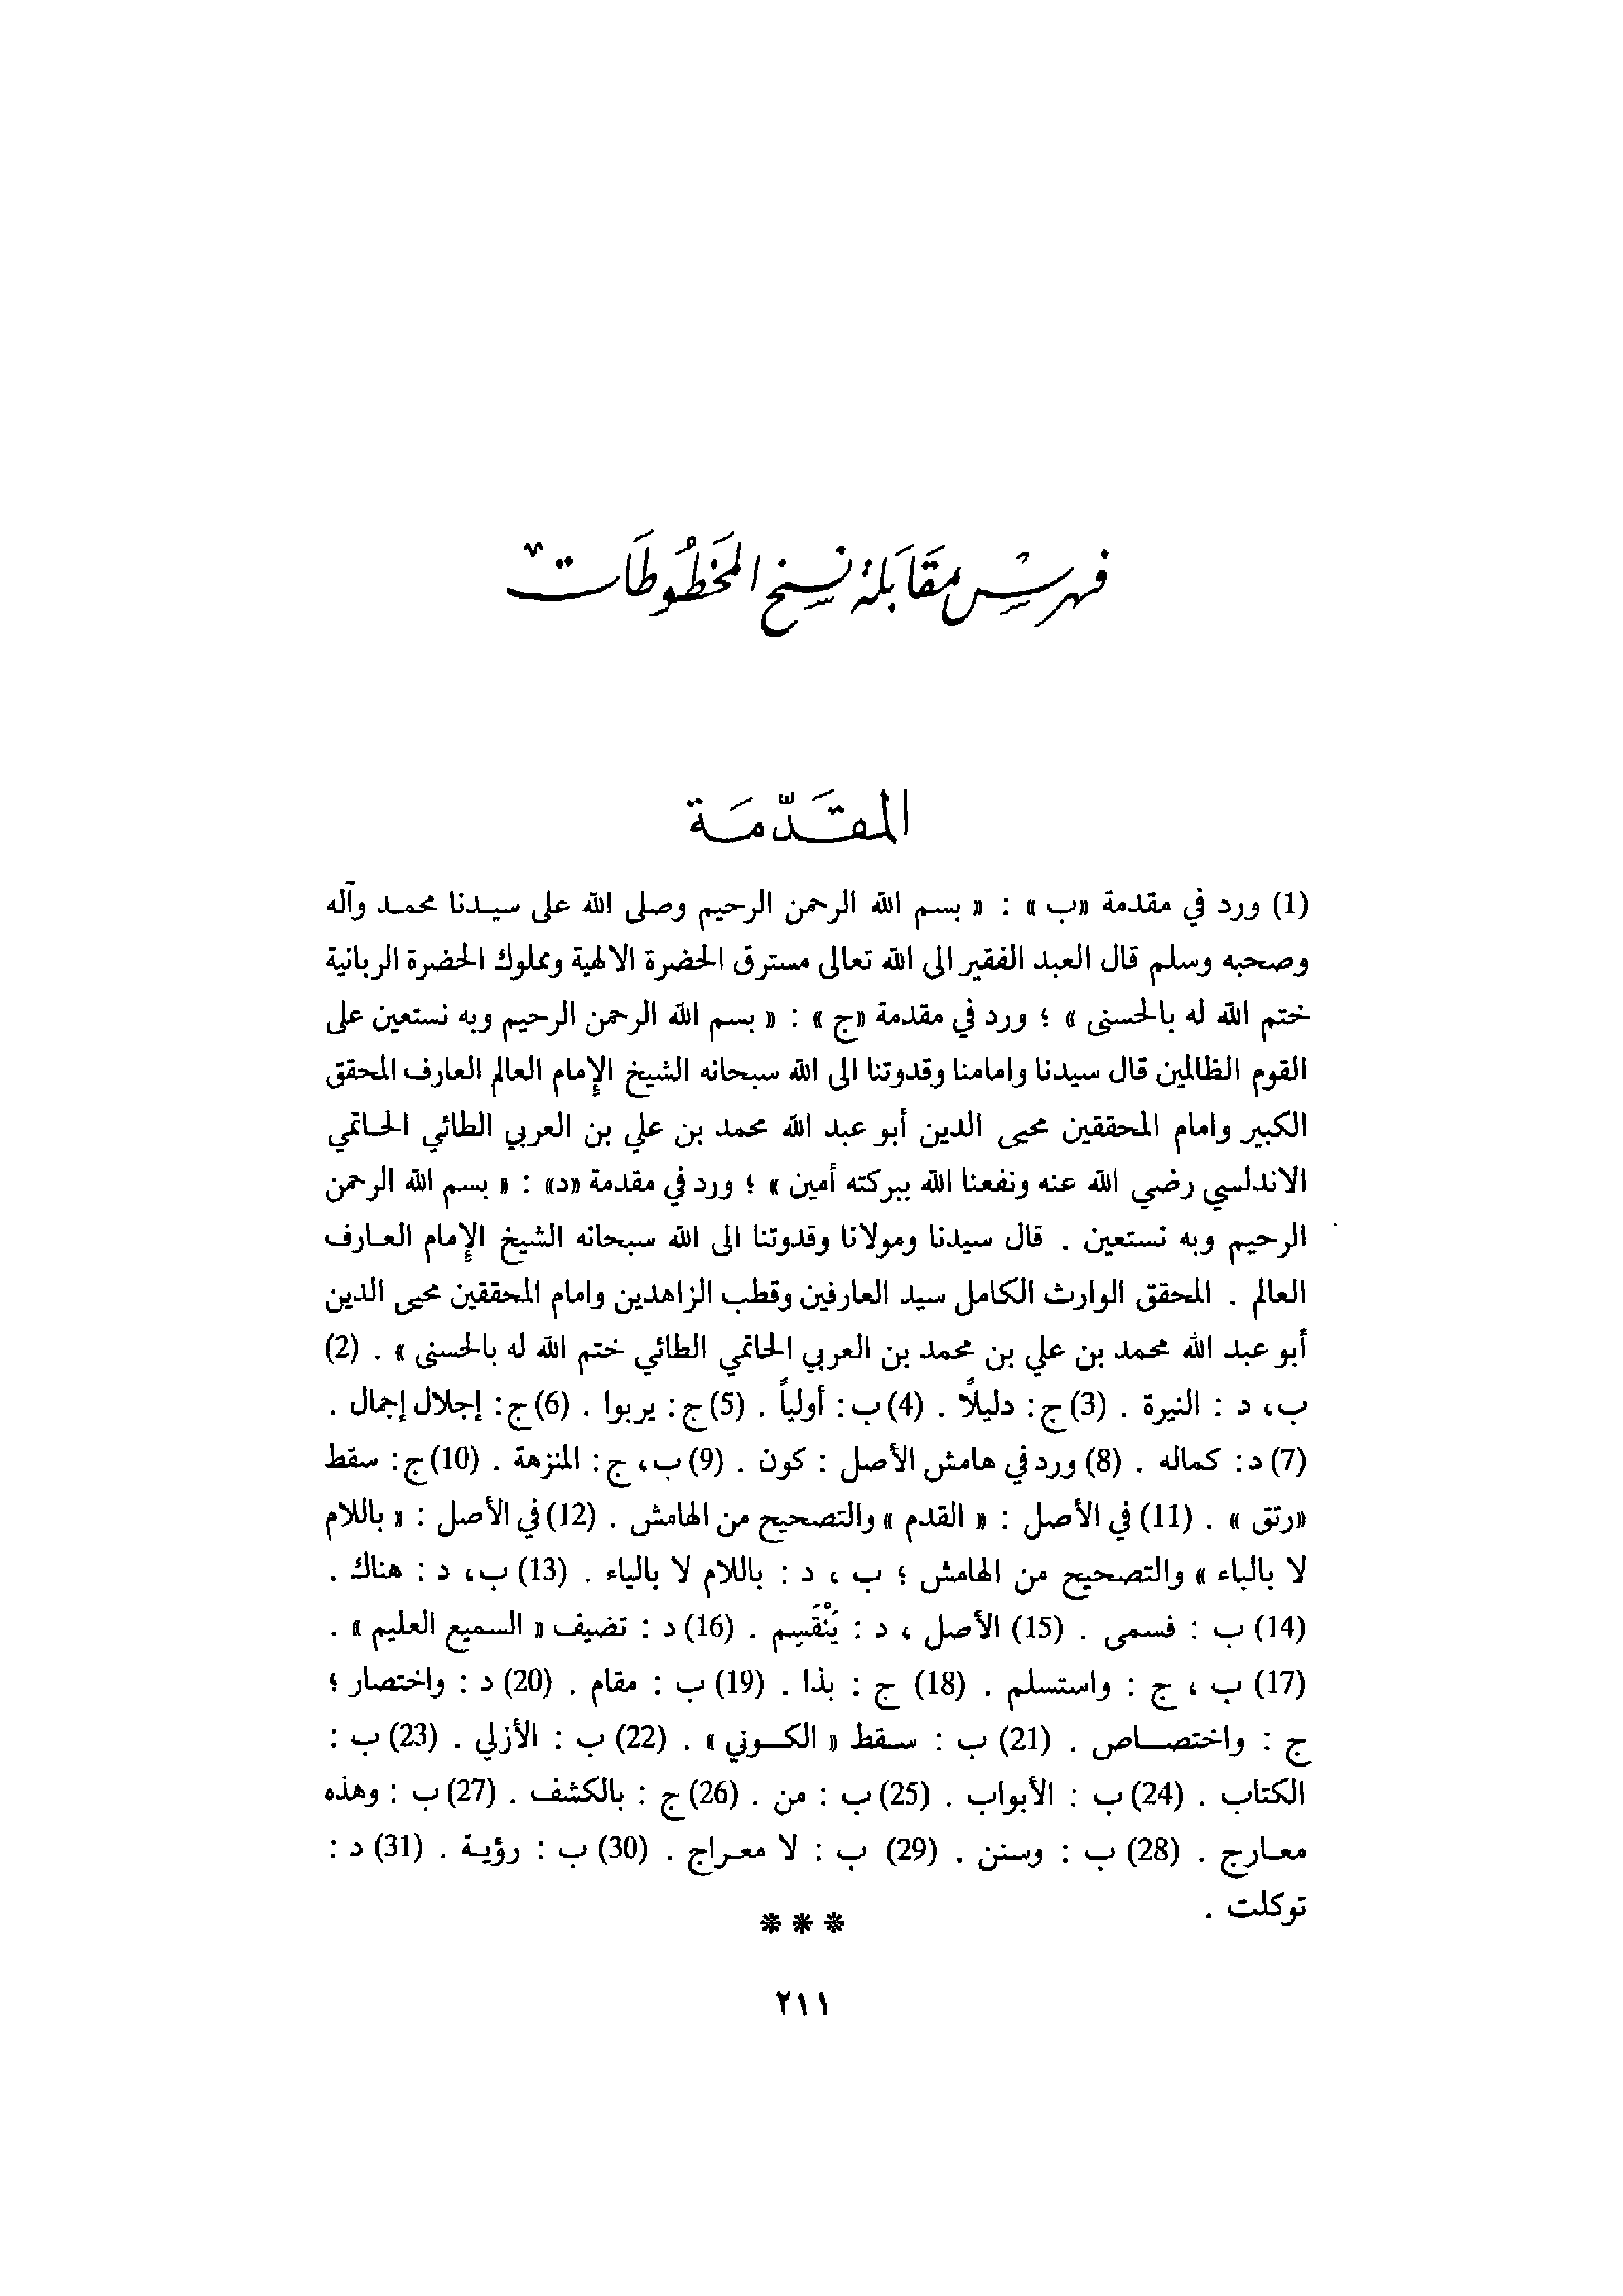 فهرس مقابلة نسخ المخطوطات
المقدّمة
(1) ورد في مقدمة «ب» : « بسم الله الرحمن الرحيم وصلى الله على سيدنا محمد وآله
وصحبه وسلم قال العبد الفقير الى الله تعالى مسترق الحضرة الالهية ومملوك الحضرة الربانية
ختم الله له بالحسنى » ؛ ورد في مقدمة «ج» : « بسم الله الرحمن الرحيم وبه نستعين على
القوم الظالمين قال سيدنا وامامنا وقدوتنا الى الله سبحانه الشيخ الإمام العالم العارف المحقق
الكبير وامام المحققين محيى الدين أبو عبد الله محمد بن علي بن العربي الطائي الحاتمي
الاندلسي رضي الله عنه ونفعنا الله ببركته أمين » ؛ ورد في مقدمة «د» : « بسم الله الرحمن
الرحيم وبه نستعين . قال سيدنا ومولانا وقدوتنا الى الله سبحانه الشيخ الإمام العارف
العالم . المحقق الوارث الكامل سيد العارفين وقطب الزاهدين وامام المحققين محيى الدين
أبو عبد الله محمد بن علي بن محمد بن العربي الحاتمي الطائي ختم الله له بالحسنى » . (2)
ب، د : النيرة . (3) ج : دليلاً . (4) ب : أولياً . (5) ج : يربوا . (6) ج : إجلال إجمال .
(7) د : كماله . (8) ورد في هامش الأصل : كون . (9) ب، ج : المنزهة . (10) ج : سقط
«رتق » . (11) في الأصل : « القدم » والتصحيح من الهامش . (12) في الأصل : « باللام
لا بالباء » والتصحيح من الهامش ؛ ب ، د : باللام لا بالياء . (13) ب، د : هناك .
(14) ب : فسمى . (15) الأصل ، د : يَنْقَسِم . (16) د : تضيف « السميع العليم » .
(17) ب ، ج : واستسلم . (18) ج : بذا . (19) ب : مقام . (20) د : واختصار ؛
ج : واختصاص . (21) ب : سقط « الكوني » . (22) ب : الأزلي . (23) ب :
الكتاب . (24) ب : الأبواب . (25) ب : من . (26) ج : بالكشف . (27) ب : وهذه
معارج . (28) ب : وسنن . (29) ب : لا معراج . (30) ب : رؤية . (31) د :
توكلت .
***
٢١١